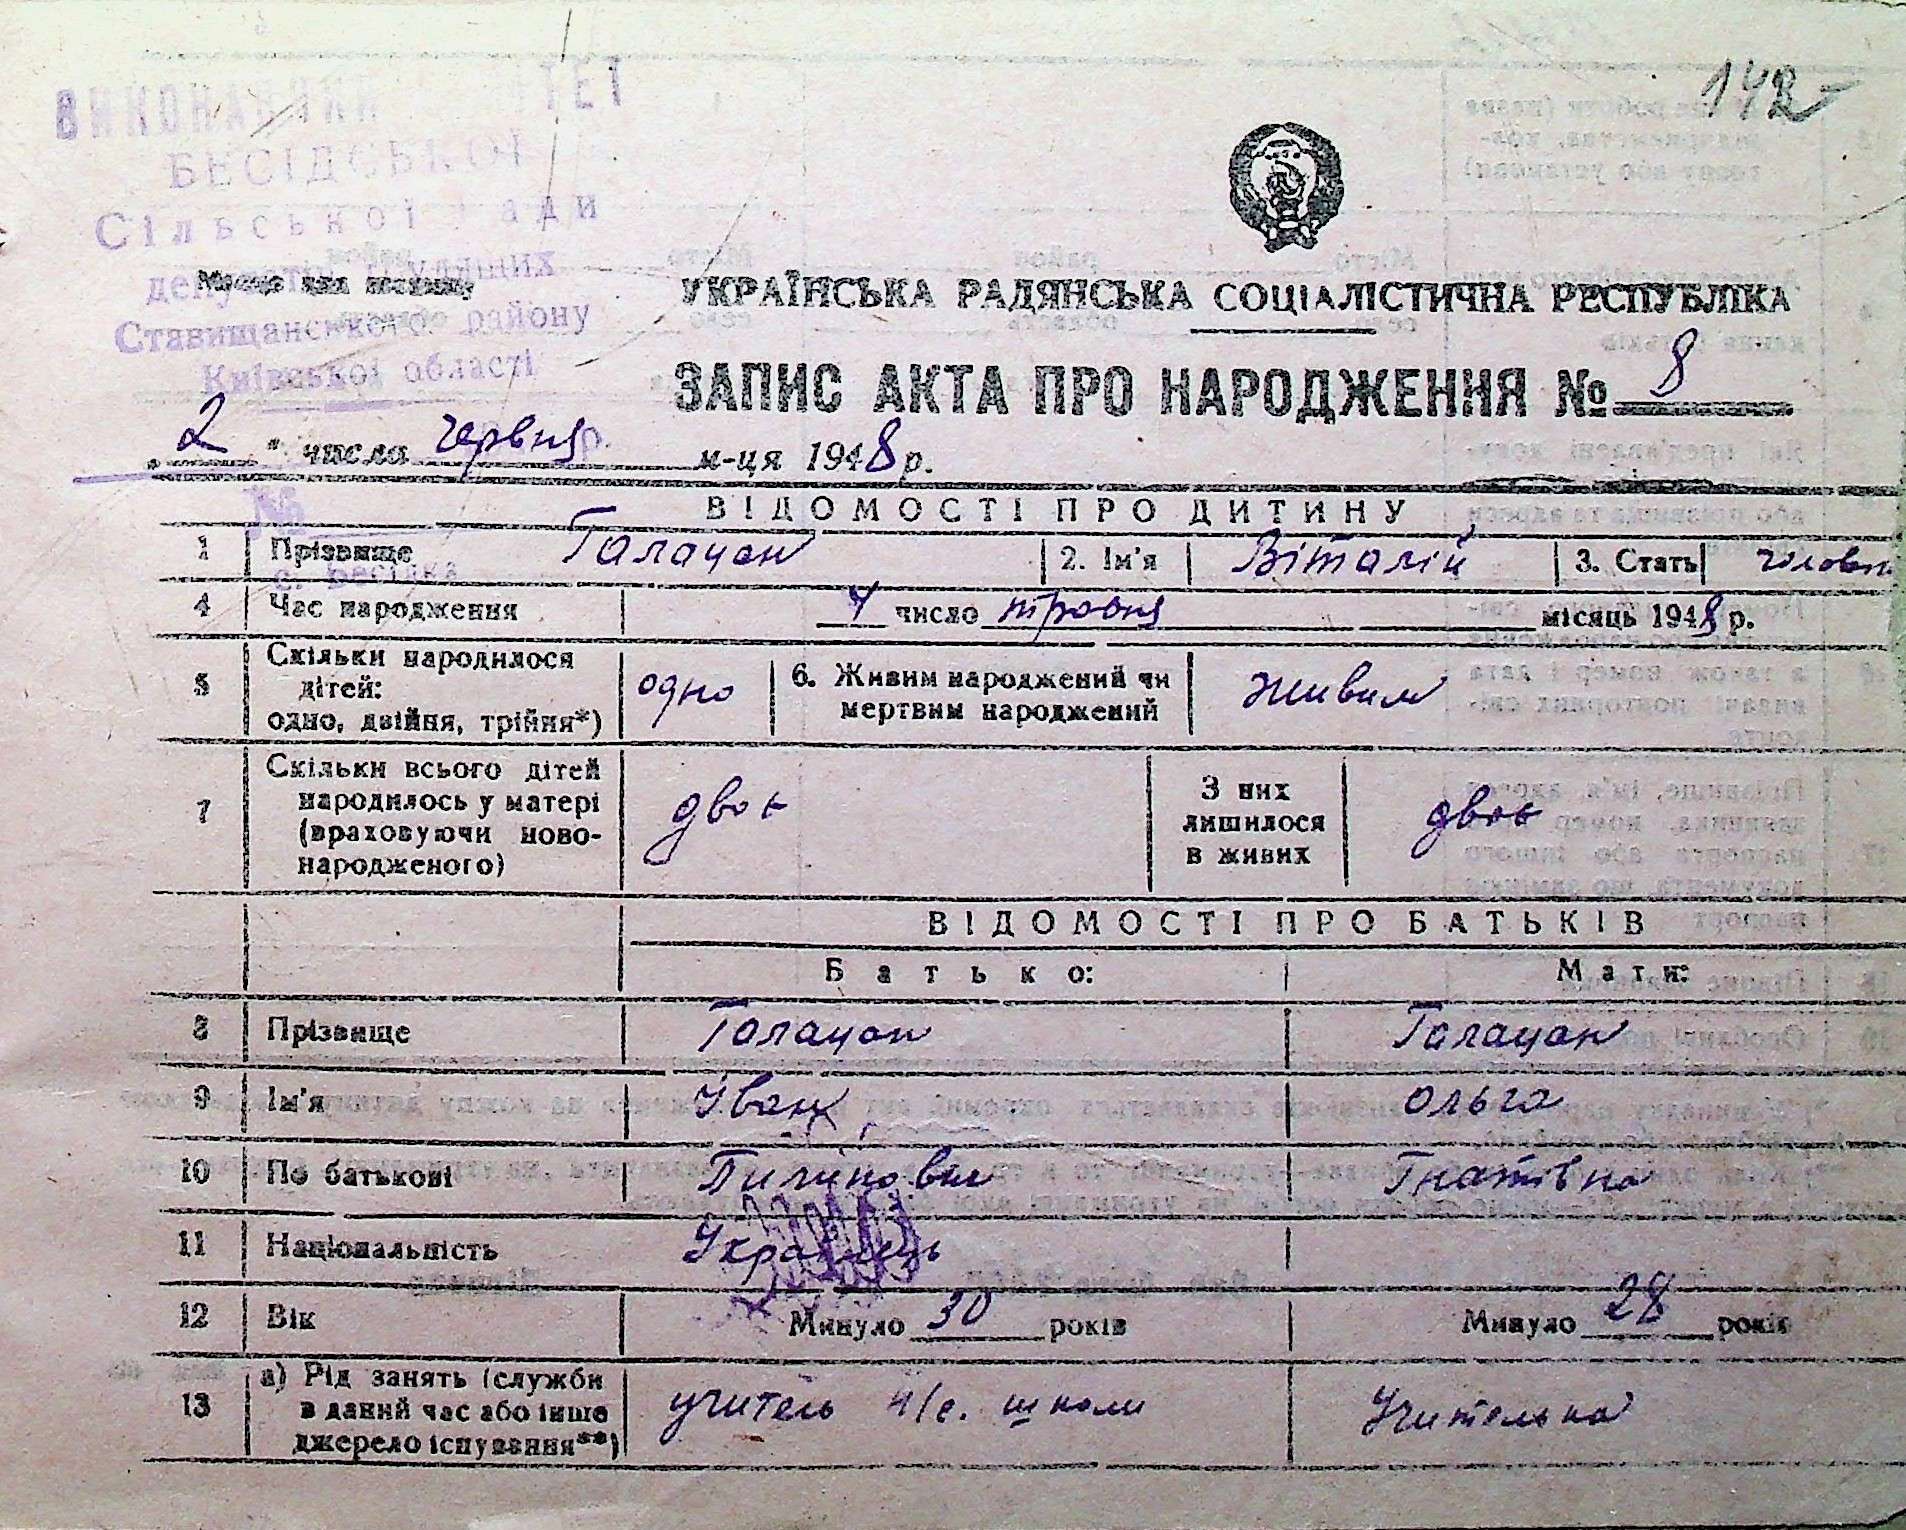 142
ВИКОНАВЧИЙ КОМІТЕТ
БЕСІДСЬКОЇ
Сільської Ради
депутатів трудящих
Ставищанського району
Київської області
Місце для штампу
УКРАЇНСЬКА РАДЯНСЬКА СОЦІАЛІСТИЧНА РЕСПУБЛІКА
ЗАПИС АКТА ПРО НАРОДЖЕННЯ № 8
„ 2 " числа червня м-ця 1948 р.
№
с. Бесідка
ВІДОМОСТІ ПРО ДИТИНУ
1 Прізвище Галацан 2. Ім'я Віталій 3. Стать
4 Час народження число травня місяць 1948 р.
5 Скільки народилося дітей: одно, двійня, трійня*) одно 6. Живим народжений чи мертвим народжений живим
7 Скільки всього дітей народилось у матері (враховуючи новонародженого) двоє З них лишилося в живих двоє
ВІДОМОСТІ ПРО БАТЬКІВ
Батько: Мати:
8 Прізвище Галацан Галацан
9 Ім'я Іван Ольга
10 По батькові Пилипович Гнатівна
11 Національність Українець
12 Вік Минуло 30 років Минуло 28 років
13 а) Рід занять (служби в даний час або інше джерело існування**) учитель н/с. школи Учителька